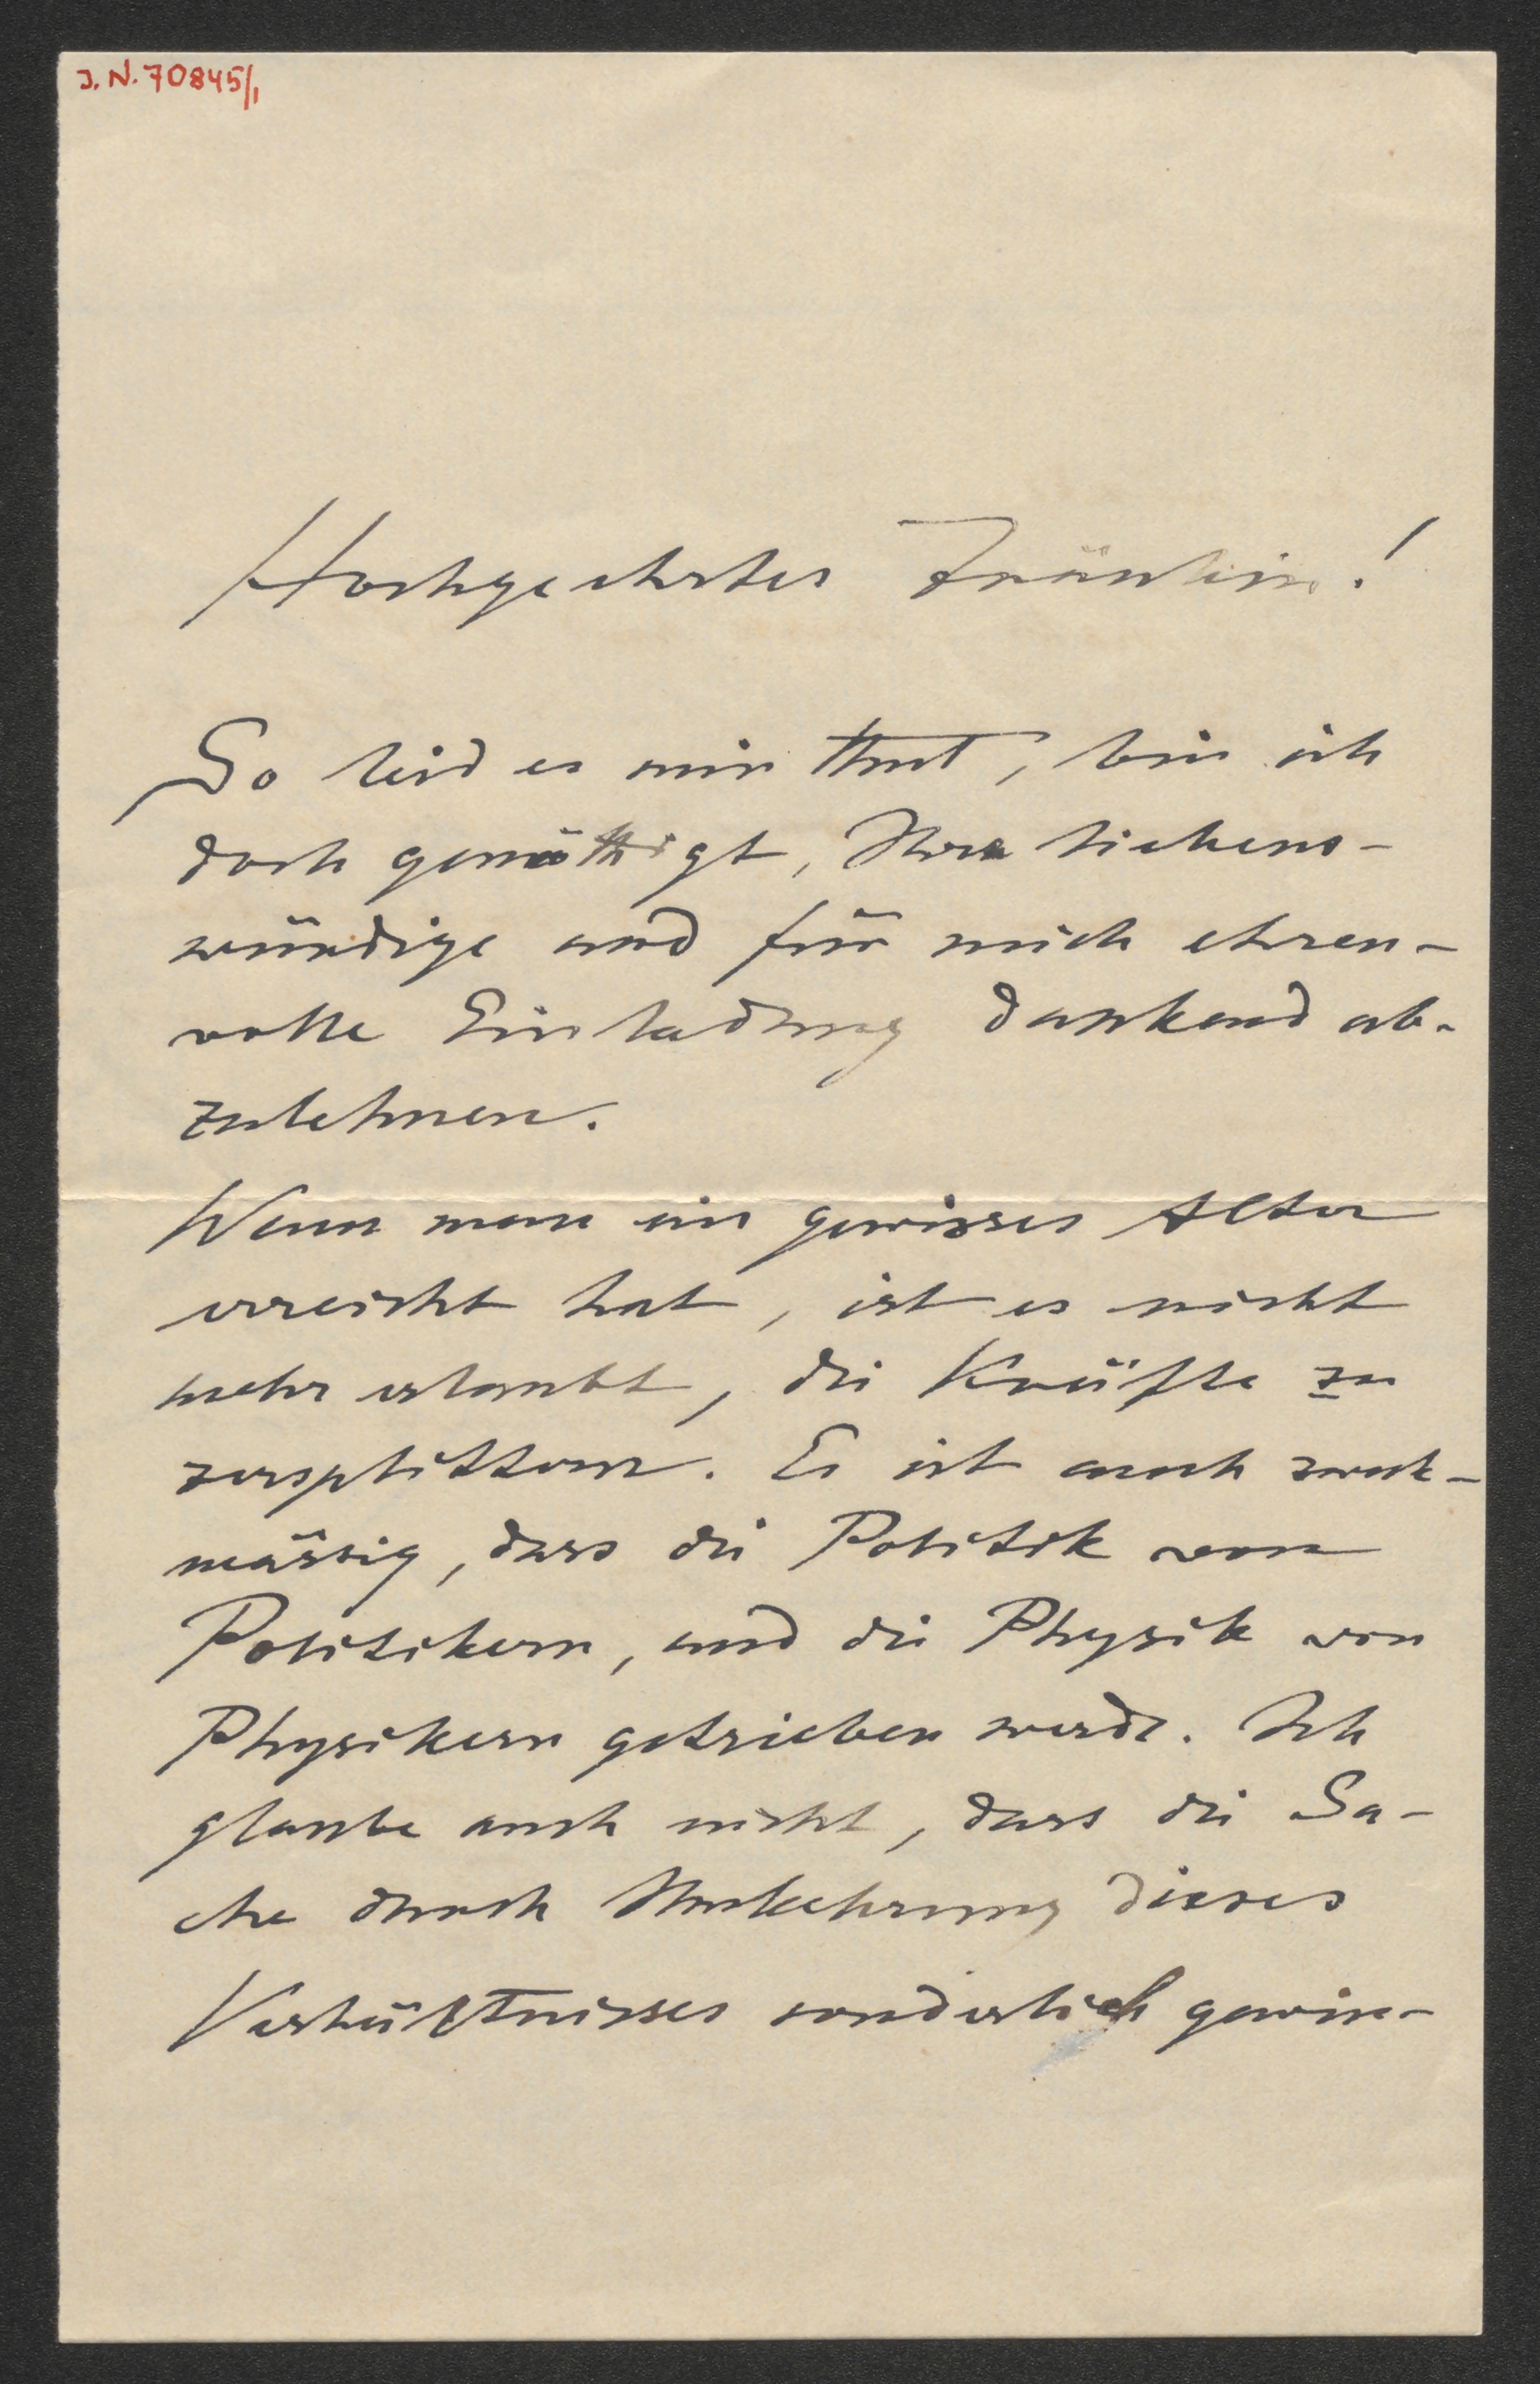 J. N. 70845/1
Hochgeehrtes Fräulein!
So leid es mir thut, bin ich
doch genöthigt, Ihre liebens-
würdige und für mich ehren-
volle Einladung dankend ab-
zulehnen.
Wenn man ein gewisses Alter
erreicht hat, ist es nicht
mehr erlaubt, die Kräfte zu
zersplittern. Es ist auch zweck-
mässig, dass die Politik von
Politikern, und die Physik von
Physikern getrieben werde. Ich
glaube auch nicht, dass die Sa-
che durch Umkehrung dieses
Verhältnisses sonderlich gewin-